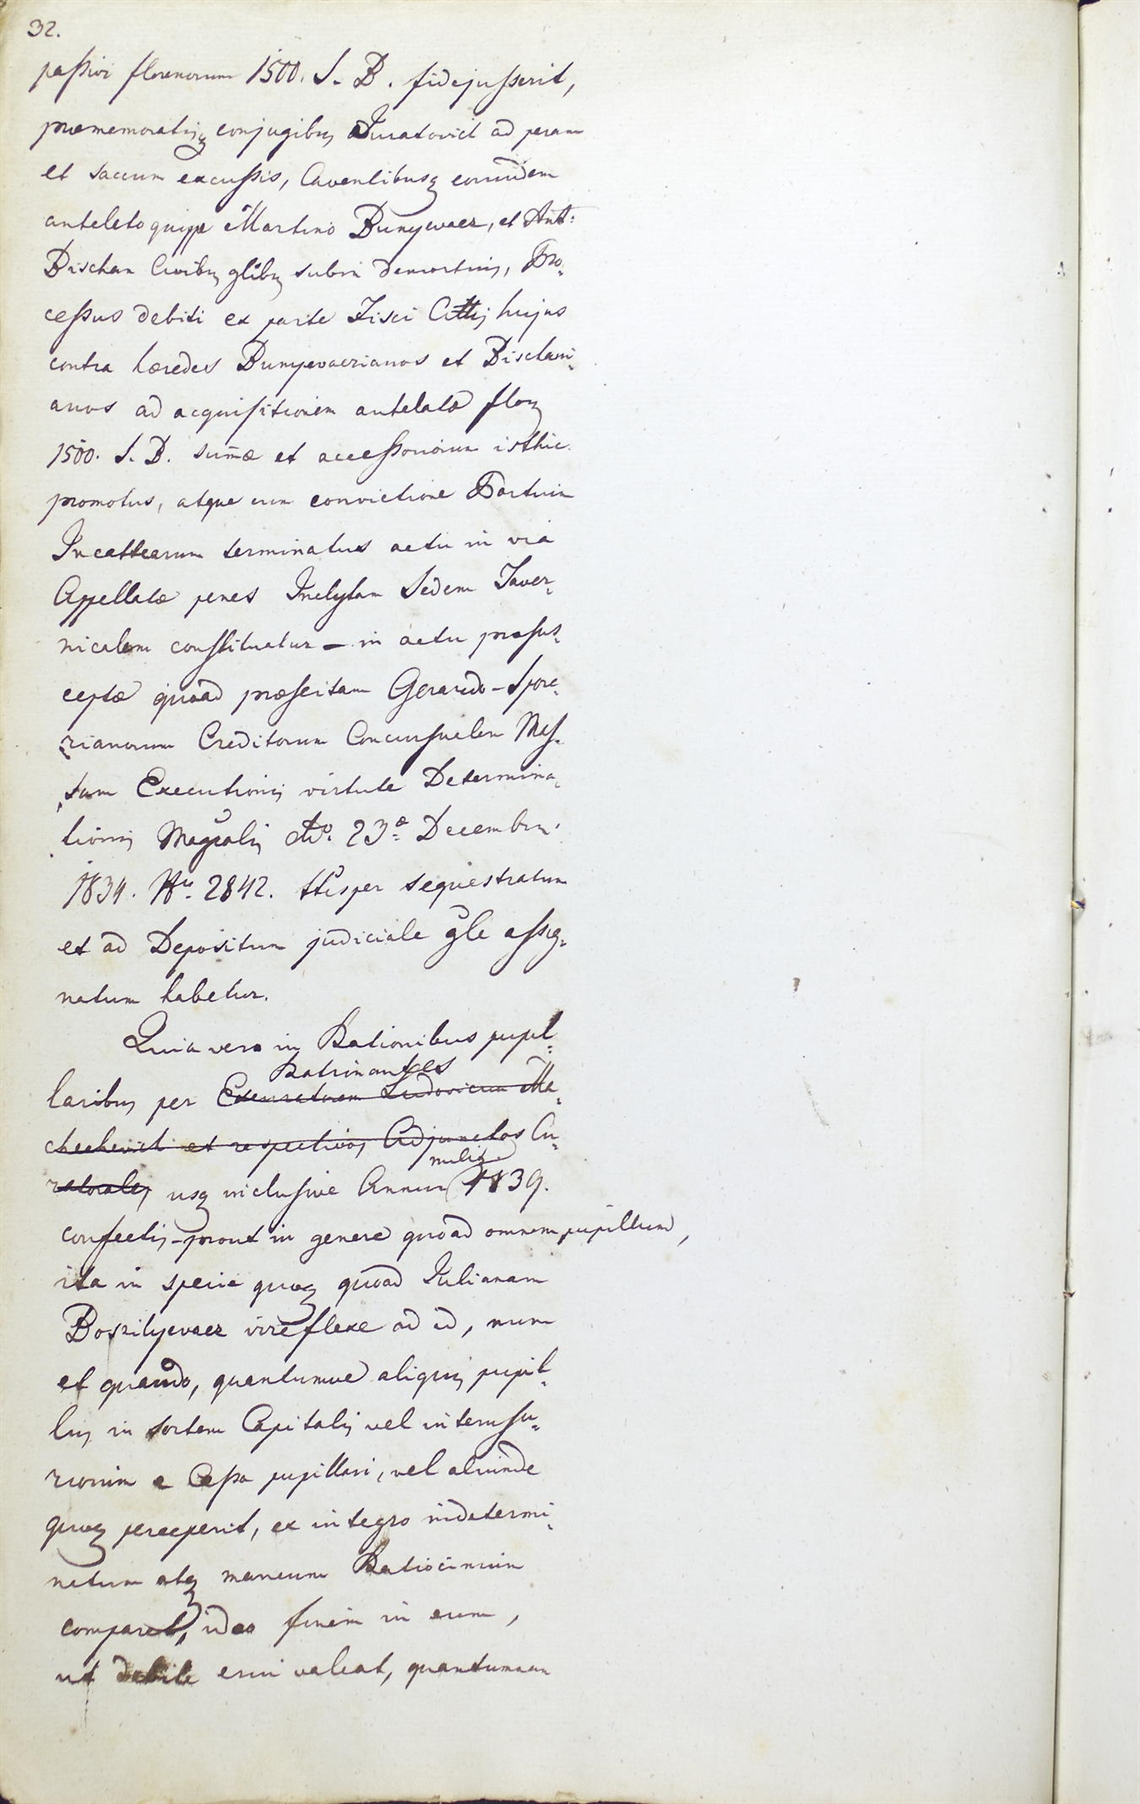 32.
passivi florenorum 1500. S. B. fidejusserit,
praememoratisq conjugibus Juratovict ad peram
et saccum excussis, Caventibusq eorundem
antelato quippe Martino Bunyevacz, et Ant:
Dischan Civibus glibus subin demortuis, Pro-
cessus debiti ex parte Fisci Cittis hujus
contra haeredes Bunyevaczianos et Dischani-
anos ad acquisitionem antelatae flor
1500. S. B. summae et accessoriorum isthic
promotus, atque cum convictione Partium
Incattearum terminatus actu in via
Appellatae penes Inclytam Sedem Taver-
nicalem constituatur – in actu praesus-
ceptae quoad praescitam Gerardo-Spore-
rianorum Creditorum Concursualem Mas-
sam Executionis virtute Determina-
tionis Magralis ddo. 23a. Decembr.
1834. Nro. 2842. ttisper sequestratum
et ad Depositum judiciale gle assig-
natum habetur.
Quia vero in Rationibus pupil-
Ratinantes
laribus per Exeuratorem Ludovicum Ma-
cheekevich et respectivos Adjunctos Cu-
milit
ratorales usq inclusive Annum 1839.
confectis – prout in genere quoad omnem pupillum,
ita in specie quoq quoad Julianam
Boszilyevacz irreflexe ad id, num
et quando, quantumve aliquis pupil-
lus in sortem Capitalis vel interusu-
riorum e Cassa pupillari, vel aliunde
quoq perceperit, ex integro indetermi-
natum atq mancum Ratiocinium
comparet, ideo finem in eum,
ut debite erui valeat, quantumnam